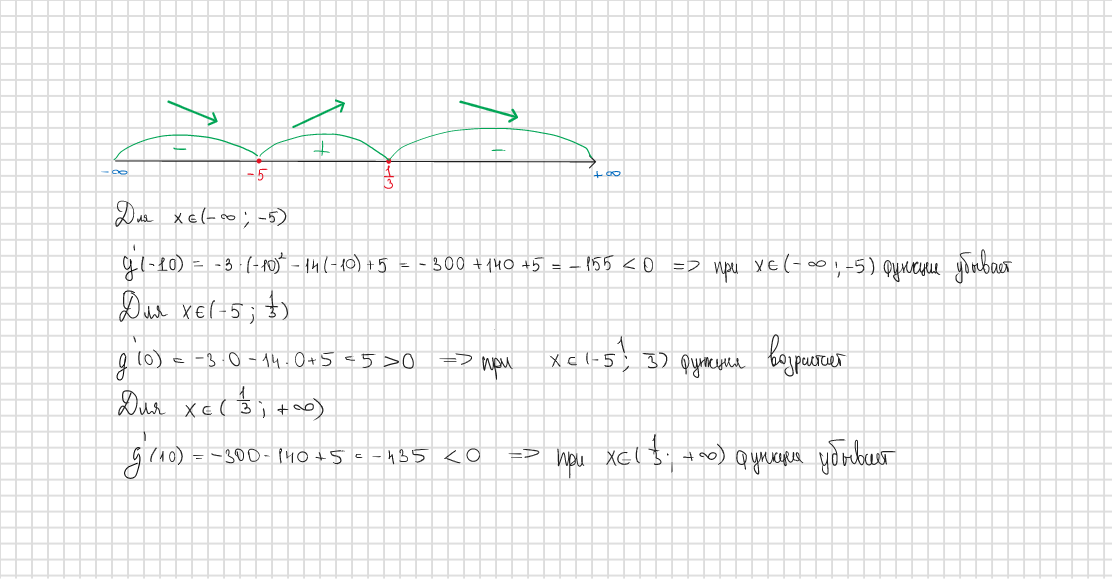 - + -
-∞ -5 1/3 +∞
Для x∈(-∞; -5)
g'(-10) = -3·(-10)² - 14(-10) + 5 = -300 + 140 + 5 = -155 < 0 => при x∈(-∞; -5) функция убывает
Для x∈(-5; 1/3)
g'(0) = -3·0 - 14·0 + 5 = 5 > 0 => при x∈(-5; 1/3) функция возрастает
Для x∈(1/3; +∞)
g'(10) = -300 - 140 + 5 = -435 < 0 => при x∈(1/3; +∞) функция убывает